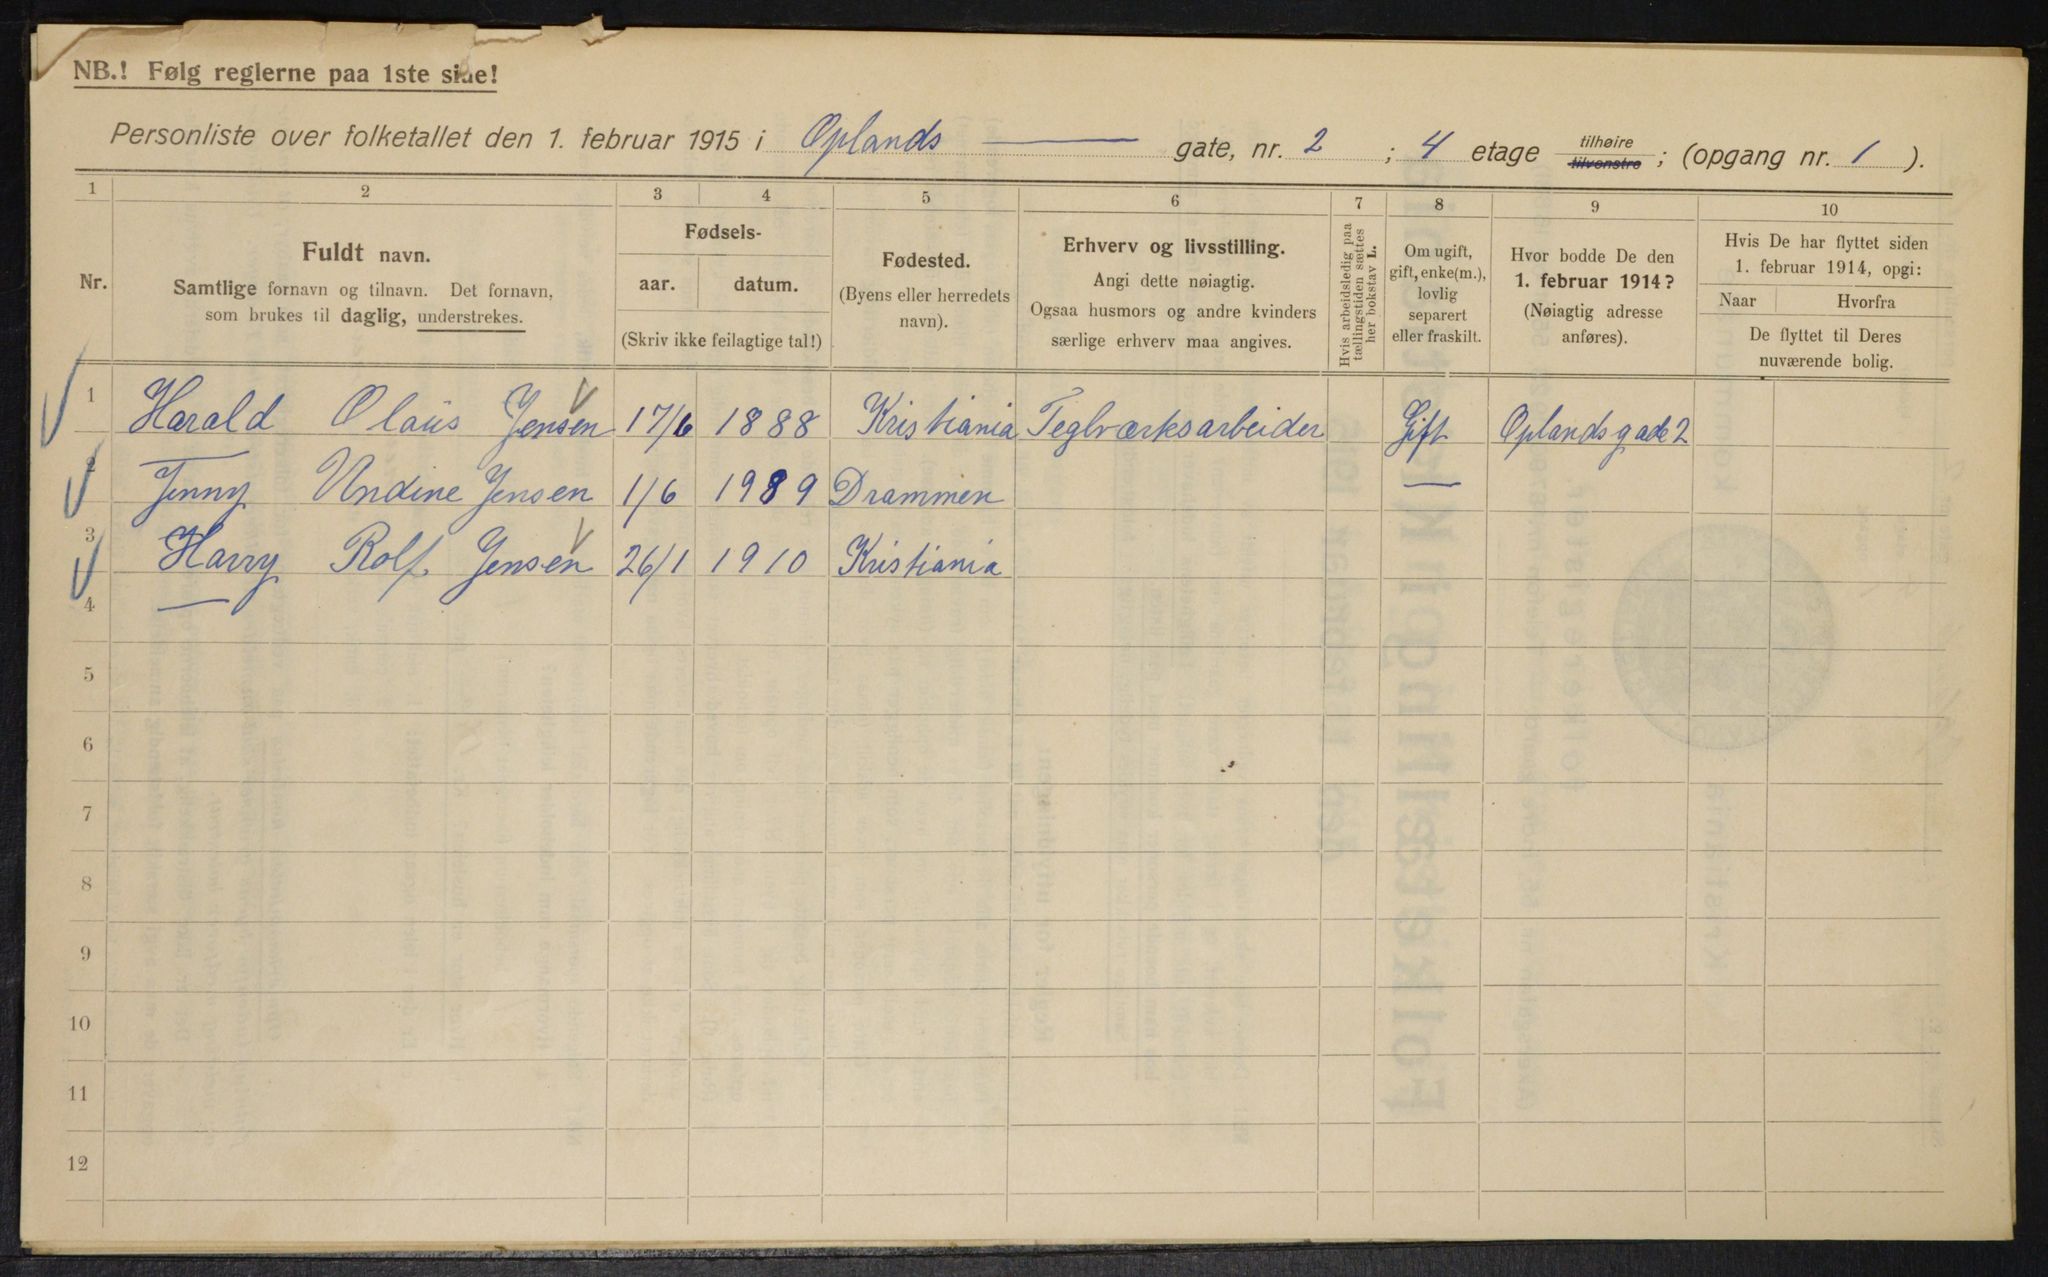 NB.! Følg reglerne paa 1ste side!
Personliste over folketallet den 1. februar 1915 i Oplands gate, nr. 2 ; 4 etage tilhøire tilvenstre ; (opgang nr. 1 ).
1 2 3 4 5 6 7 8 9 10
Nr.
Fuldt navn.
Samtlige fornavn og tilnavn. Det fornavn,
som brukes til daglig, understrekes.
Fødsels-
aar. datum.
(Skriv ikke feilagtige tal!)
Fødested.
(Byens eller herredets
navn).
Erhverv og livsstilling.
Angi dette nøiagtig.
Ogsaa husmors og andre kvinders
særlige erhverv maa angives.
Hvis arbeidsledig paa
tællingstiden sættes
her bokstav L.
Om ugift,
gift, enke(m.),
lovlig
separert
eller fraskilt.
Hvor bodde De den
1. februar 1914?
(Nøiagtig adresse
anføres).
Hvis De har flyttet siden
1. februar 1914, opgi:
Naar Hvorfra
De flyttet til Deres
nuværende bolig.
1 Harald Olaüs Jensen 17/6 1888 Kristiania Teglværksarbeider Gift Oplandsgade 2
2 Jenny Undine Jensen 1/6 1989 Drammen —
3 Harry Rolf Jensen 26/1 1910 Kristiania
4
5
6
7
8
9
10
11
12